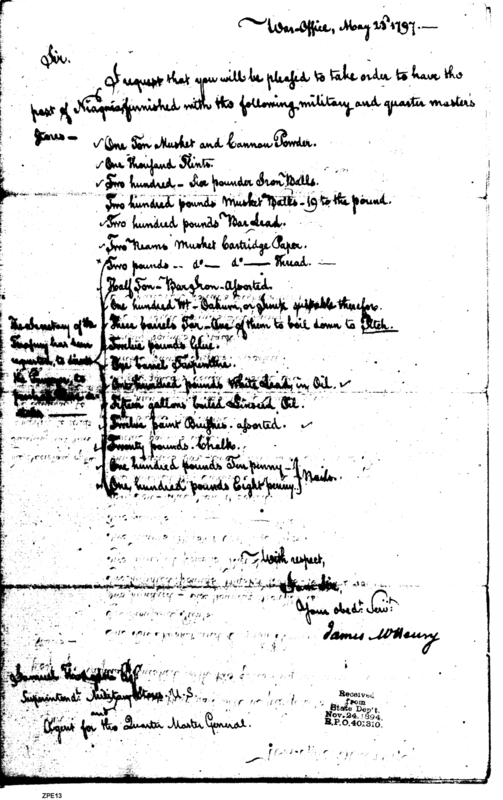 War-Office, May 23d 1797.—
Sir.
I request that you will be pleased to take order to have the
post of Niagara furnished with the following military and quarter masters
stores—
One Ton Musket and Cannon Powder.
One Thousand Flints.
Two hundred - Six pounder Iron Balls.
Two hundred pounds Musket Balls - 19 to the pound.
Two hundred pounds Bar Lead.
Two Reams Musket Cartridge Paper.
Two pounds -- do — do — Thread. —
Half Ton - Bar Iron - Assorted.
One hundred Wt. Oakum, or Junk suitable therefor.
Three barrels Tar - One of them to boil down to Pitch.
Twelve pounds Glue.
One barrel Turpentine.
One hundred pounds White Lead, in Oil.
Fifteen gallons boiled Linseed Oil.
Twelve paint Brushes assorted.
Twenty pounds Chalk.
One hundred pounds Ten penny - } Nails.
One hundred pounds Eight penny }
The Secretary of the
Treasury has been
requested, to direct
the Purveyor, to
purchase these
With respect,
I am Sir,
Your obedt. Servt.
James McHenry
Samuel Hodgdon Esqr.
Superintendt. Military Stores, U.S.
and
Agent for the Quarter Master General.
Received
from
State Dep't.
Nov. 24, 1894.
R.P.O. 401310.
ZPE13